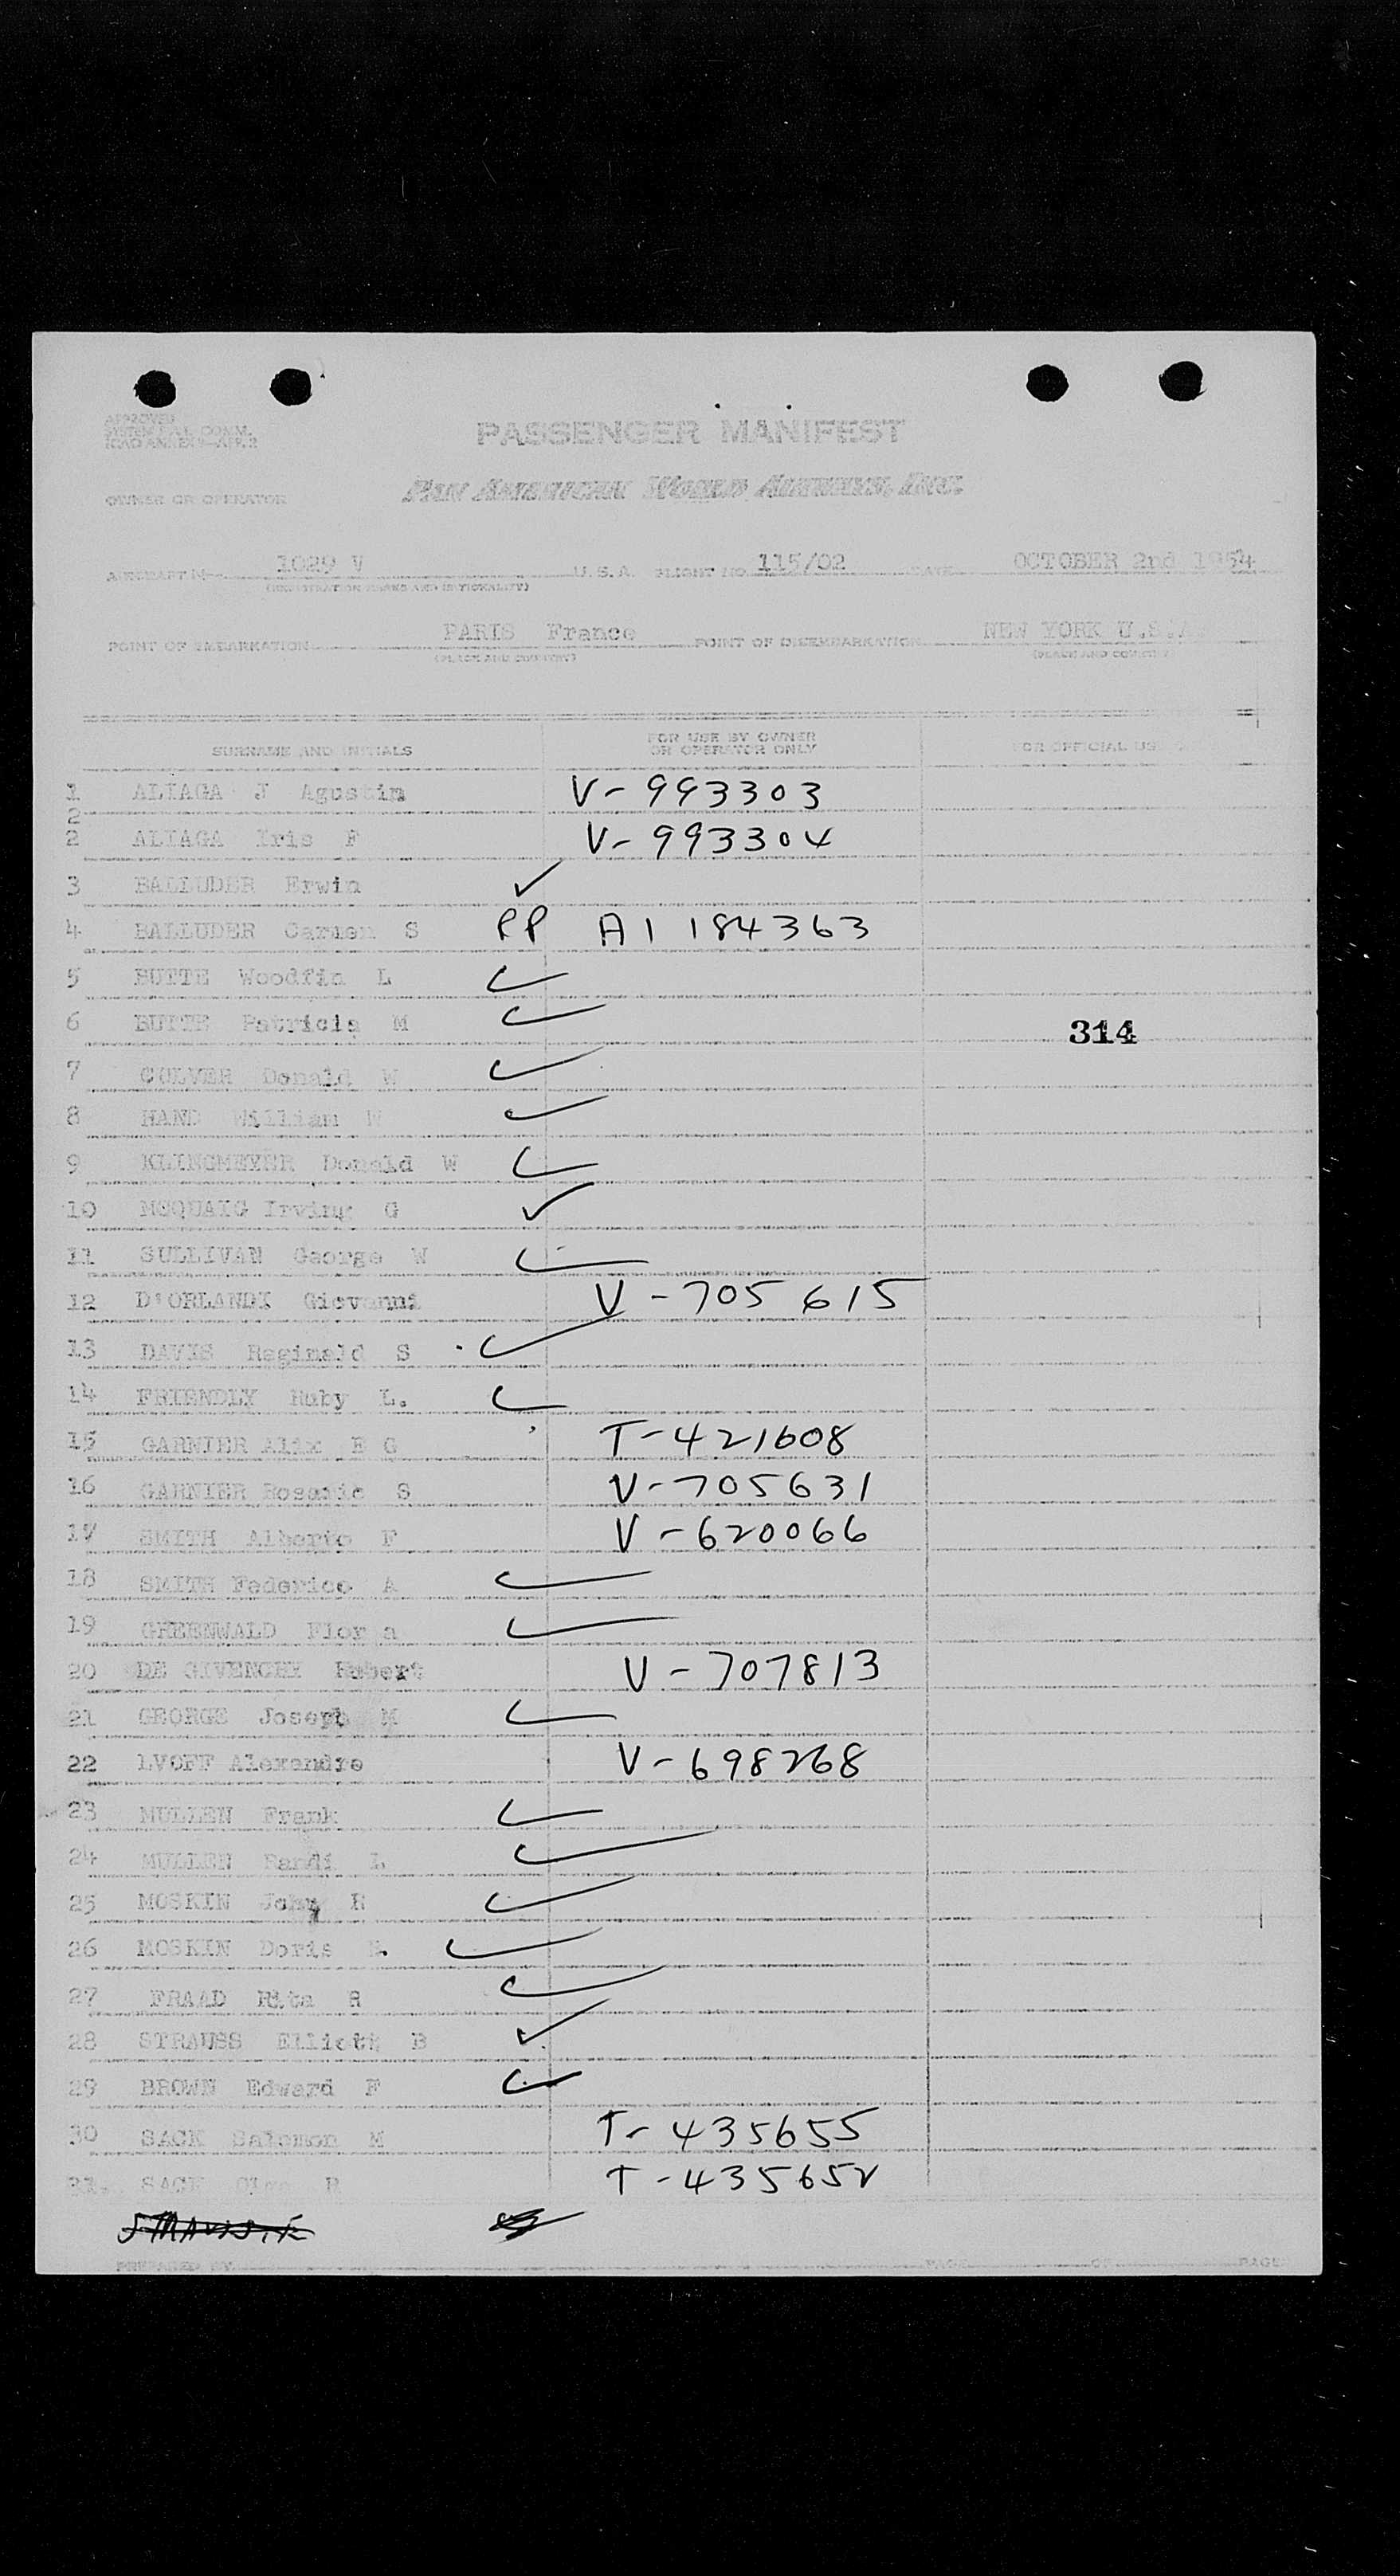 APPROVED
SYSTEM FAL COMM.
ICAO ANNEX 9-APP. 2
PASSENGER MANIFEST
OWNER OR OPERATOR PAN AMERICAN WORLD AIRWAYS, INC.
AIRCRAFT N- 1029 V U.S.A. FLIGHT NO. 115/02 DATE OCTOBER 2nd 1954
(REGISTRATION MARKS AND NATIONALITY)
POINT OF EMBARKATION PARIS France POINT OF DISEMBARKATION NEW YORK U.S.A
(PLACE AND COUNTRY) (PLACE AND COUNTRY)
SURNAME AND INITIALS FOR USE BY OWNER OR OPERATOR ONLY FOR OFFICIAL USE
1 ALIAGA J Agustin V-993303
2
2 ALIAGA Iris F V-993304
3 BALLUDER Erwin ✓
4 BALLUDER Carmen S PP A1 184363
5 BUTTE Woodfin L ✓
6 BUTTE Patricia M ✓ 314
7 CULVER Donald W ✓
8 HAND William W ✓
9 KLINGMEYER Donald W ✓
10 MCQUAIG Irving G ✓
11 SULLIVAN George W ✓
12 D'ORLANDI Giovanni V-705615
13 DAVIS Reginald S ✓
14 FRIENDLY Ruby L. ✓
15 GARNIER Alix E G T-421608
16 GARNIER Rosario S V-705631
17 SMITH Alberto F V-620066
18 SMITH Federico A ✓
19 GREENWALD Flor a ✓
20 DE GIVENCHY Hubert V-707813
21 GEORGE Joseph M ✓
22 LVOFF Alexandre V-698268
23 MULLEN Frank ✓
24 MULLEN Randi L ✓
25 MOSKIN John R ✓
26 MOSKIN Doris ✓
27 FRAAD Rita ✓
28 STRAUSS Elliott B ✓
29 BROWN Edward F ✓
30 SACK Salomon M T-435655
31. SACK T-435652
PREPARED BY PAGE OF PAGE